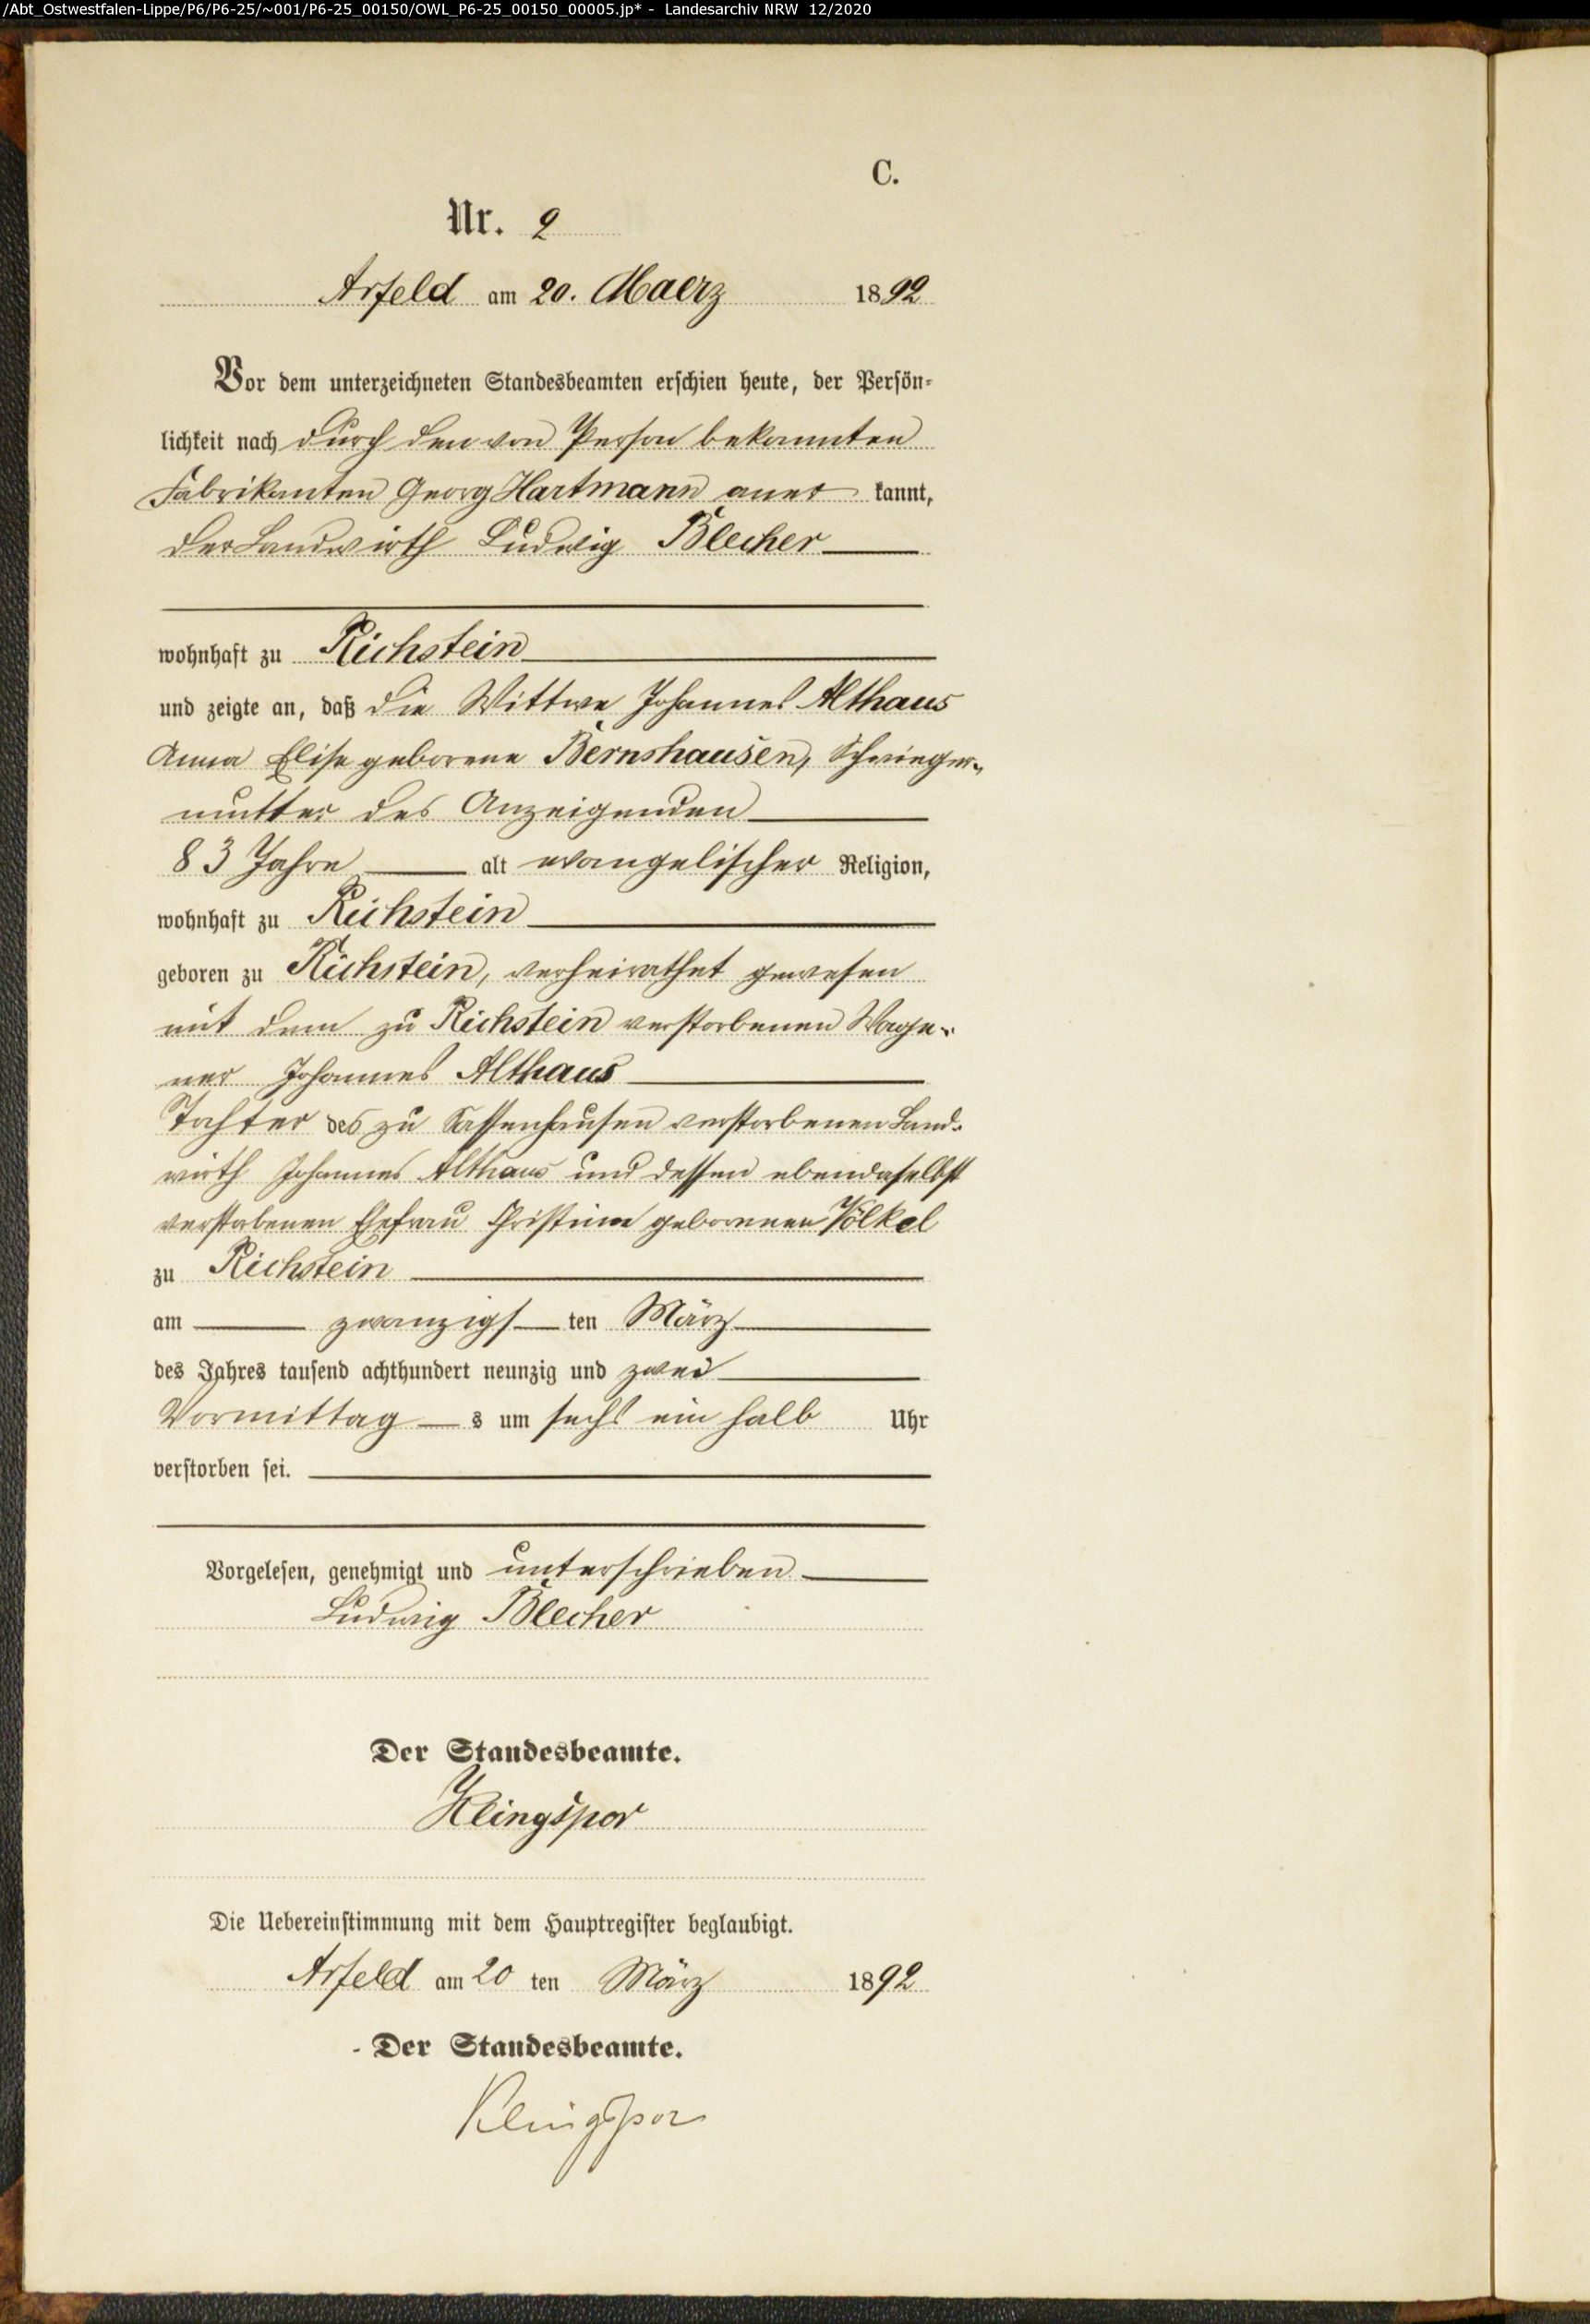 /Abt_Ostwestfalen-Lippe/P6/P6-25/~001/P6-25_00150/OWL_P6-25_00150_00005.jp* - Landesarchiv NRW 12/2020
C.
Nr. 2
Arfeld am 20. Maerz 1892
Vor dem unterzeichneten Standesbeamten erschien heute, der Persön-
lichkeit nach durch den von Person bekannten
Fabrikanten Georg Hartmann aner kannt,
der Landwirth Ludwig Blecher
wohnhaft zu Richstein
und zeigte an, daß die Wittwe Johannes Althaus
Anna Elise geborene Bernshausen, Schwieger-
mutter des Anzeigenden
83 Jahre alt evangelischer Religion,
wohnhaft zu Richstein
geboren zu Richstein, verheirathet gewesen
mit dem zu Richstein verstorbenen Wage-
ner Johannes Althaus
Tochter des zu Sassenhausen verstorbenen Land-
wirth Johannes Althaus und dessen ebendaselbst
verstorbenen Ehefrau Christine geborenen Völkel
zu Richstein
am zwanzigs ten März
des Jahres tausend achthundert neunzig und zwei
Vormittag s um sechs ein halb Uhr
verstorben sei.
Vorgelesen, genehmigt und unterschrieben
Ludwig Blecher
Der Standesbeamte.
Klingspor
Die Uebereinstimmung mit dem Hauptregister beglaubigt.
Arfeld am 20 ten März 1892
Der Standesbeamte.
Klingspor